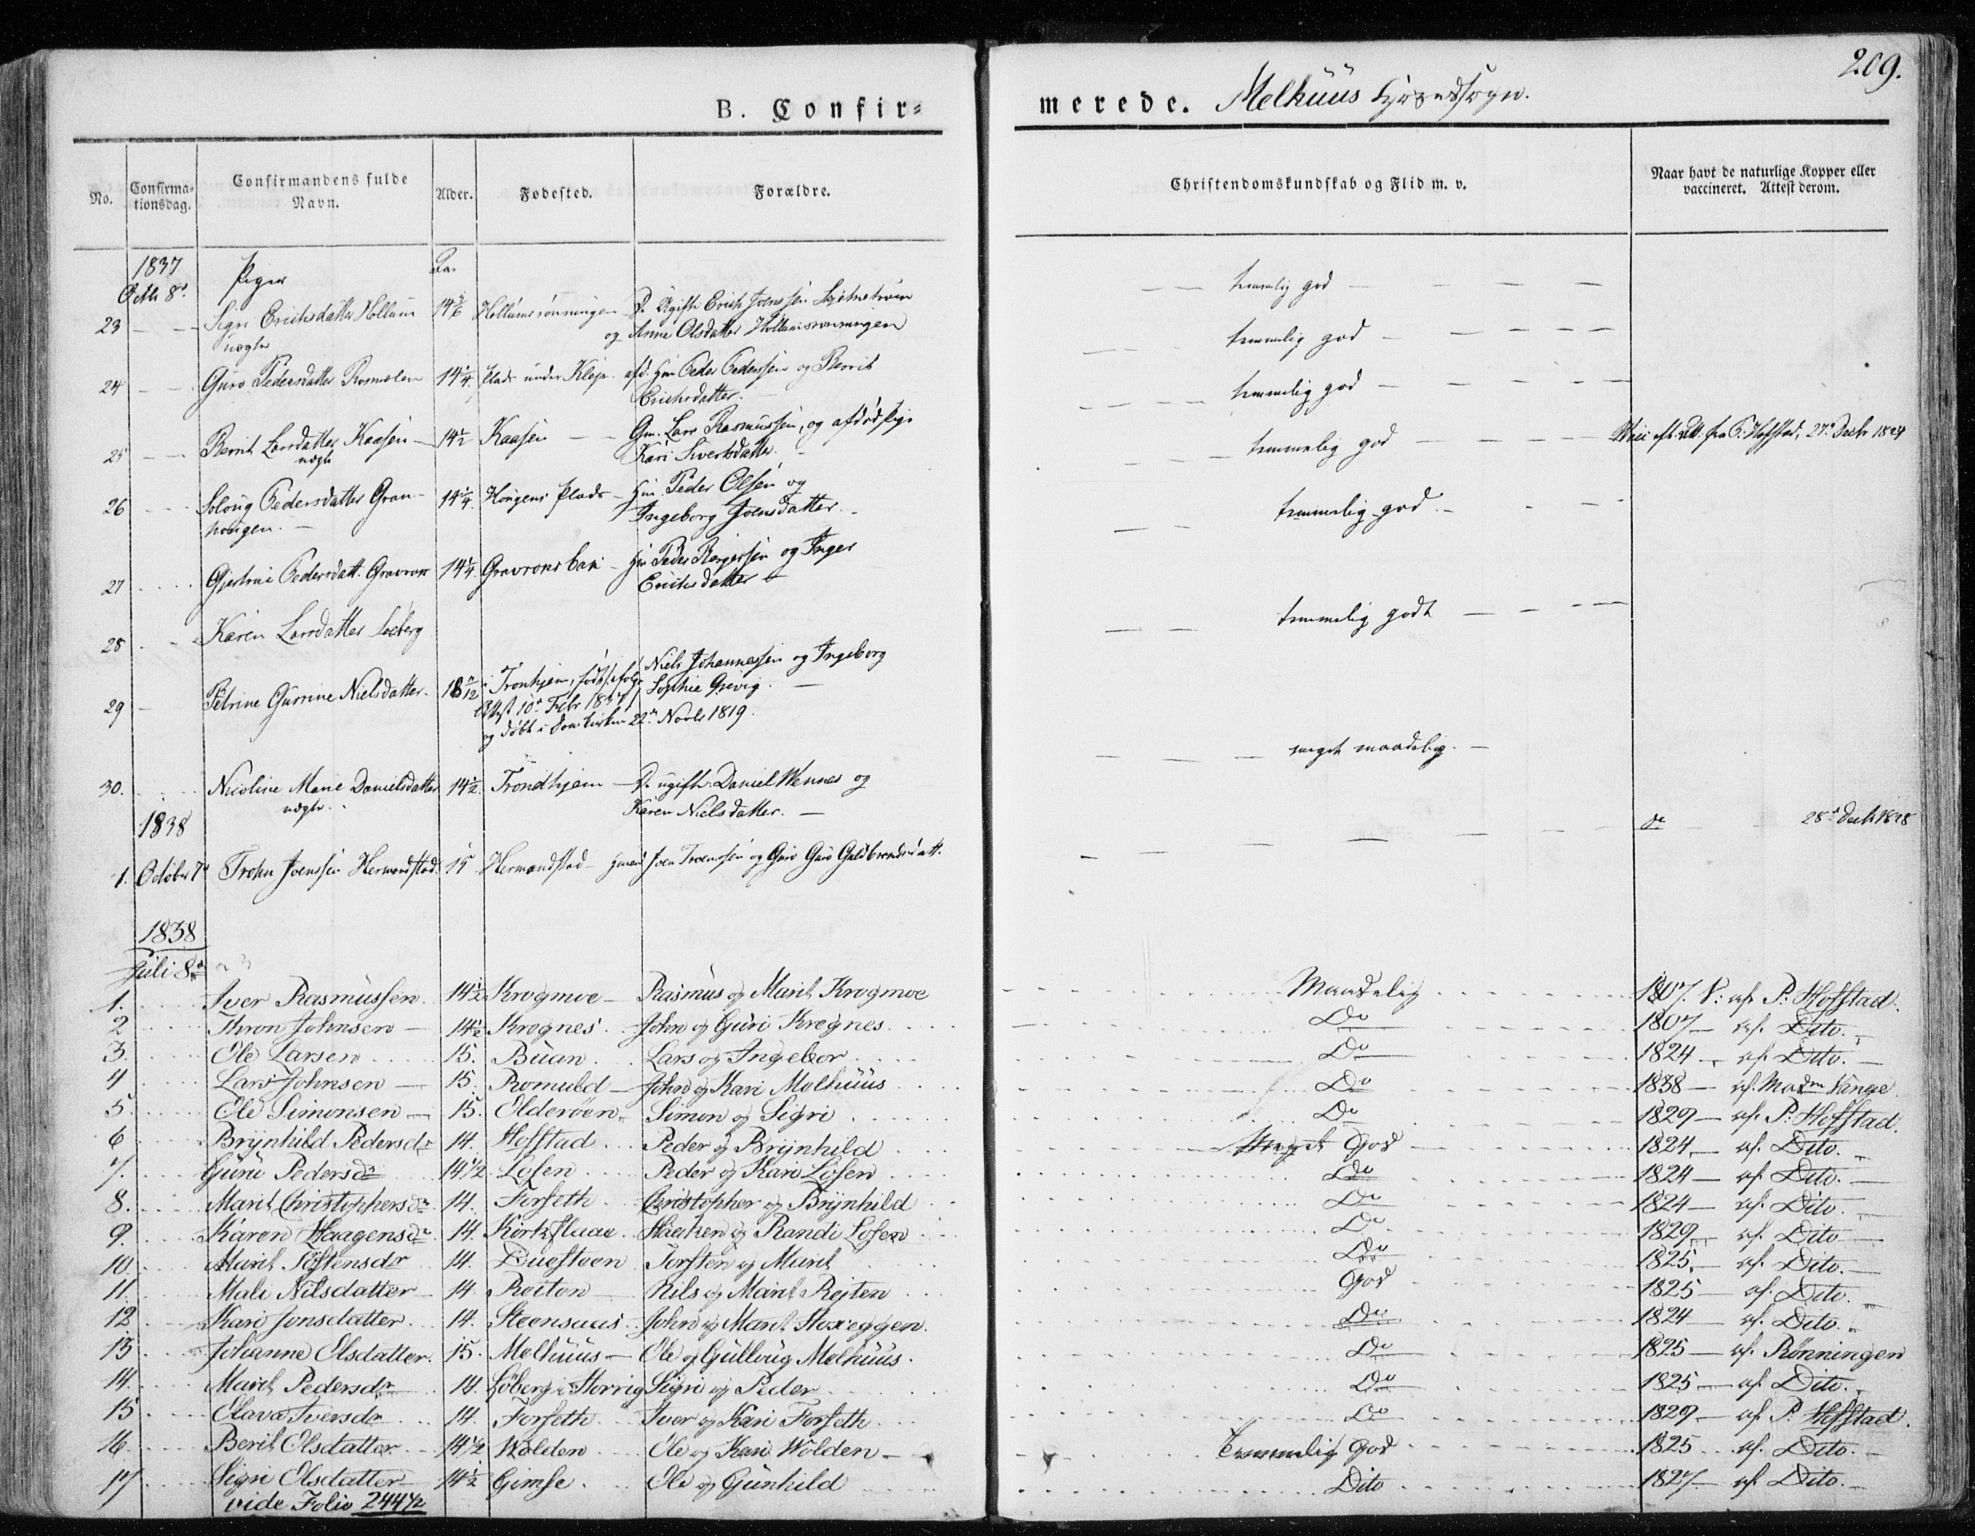 209.
B. Confir=
merede. Melhüüs Hovedsogn.
No.
Confirma-
tionsdag.
Confirmandens fulde
Navn.
Alder.
Fødested.
Forældre.
Christendomskundskab og Flid m. v.
Naar havt de naturlige Kopper eller
vaccineret. Attest derom.
1837
Octb 8d.
Piger
Aar
23 Sigri Erichsdatter Hollum 14 Hollumsrønningen P. Ugifte Erich Joenssen
uægte og Anne Olsdatter Hollumsrønningen
temmelig god
24 Guro Pedersdatter 14 1/4 Plads under Hm Peder Pedersen og Berit
Erichsdatter.
temmelig god
25 Berit Larsdatter Kaasen 14 1/2 Kaasen Gm. Lars Rasmussen, og afdød Pige
uægte Kari Sivertsdatter.
temmelig god
26 Solvig Pedersdatter Gran- 14 1/4 Hougens Plads Hm. Peder Olsen og
hougen. Ingeborg Joensdatter.
temmelig god 27de Decbr 1824
27 Gjertrue Pedersdatt. Gravrok 14 1/4 Gravroksbak Hm Peder Birgersen og Inger
Erichsdatter
temmelig god
28 Karen Larsdatter Søeberg
29 Petrine Gurine Nielsdatter. 18 Tronhjem, født ifølge Niels Johannessen og Ingeborg
Attest 10de Febr 1837 Sophie Grevig.
og døbt i Domkirken 22de Novbr 1819.
temmelig godt
30. Nicoline Marie Danielsdatter 14 1/2. Trondhjem P. ugifte Daniel Wennes og
uægte. Karen Nielsdatter.
meget maadelig.
1838
1. October 7d Trohn Joenssen Hermandstad 15 Hermandstad Gmand Joen Troenssen og Guro Guro Guldbrandsdatt.
do 28de Decb 1828
1838
Juli 8de
1. Iver Rasmussen. 14 1/2 Krogmoe Rasmus og Marit Krogmoe Maadelig 1807. V: af P: Hofstad.
2 Thron Johnsen 14 1/2 Krognes John og Guri Kregnes. Do 1807 af Dito.
3. Ole Larsen 15. Buan. Lars og Ingebor. Do 1824 af Dito.
4 Lars Johnsen 15. Romuld John og Kari Melhüüs Do 1838 af Madm Vinge
5. Ole Simonsen 15. Elderøen Simon og Sigri Do 1829 af P: Hofstad.
6 Brynhild Pedersdr 14. Hofstad. Peder og Brynhild Meget God 1824 af Dito.
7. Guru Pedersdr 14 1/2 Losen Peder og Kari Losen Do 1824 af Dito.
8. Marit Christophersdr 14. Forseth Christopher og Brynhild Do 1824 af Dito.
9. Karen Haagensdr 14. Kirkflaae Haaken og Randi Losen Do 1829 af Dito.
10 Marit Tostensdr 14. Tuestuen Torsten og Marit Do 1825. af. Dito.
11. Mali Nilsdatter 14. Roiton Nils og Marit Rojten God 1825 af. Dito.
12 Kari Jonsdatter. 14. Steensaas John og Marit Hoxeggen. Do 1824 af. Dito.
13 Johanne Olsdatter. 15. Melhüüs Ole og Gullvug Melhüüs. Do 1825 af. Rønningen
14. Marit Pedersdr 14. Søberg i Horrig Sigri og Peder Do 1825 af Dito.
15 Olava Iversdr 14. Forseth Iver og Kari Forseth Do 1829 af P. Hofstad.
16 Berit Olsdatter 14 1/2 Wolden Ole og Kari Wolden Temmelig God 1825 af. Dito.
17 Sigri Olsdatter 14 1/2 Gimse. Ole og Gunhild Dito 1827 af. Dito.
vide Folio 244 1/2